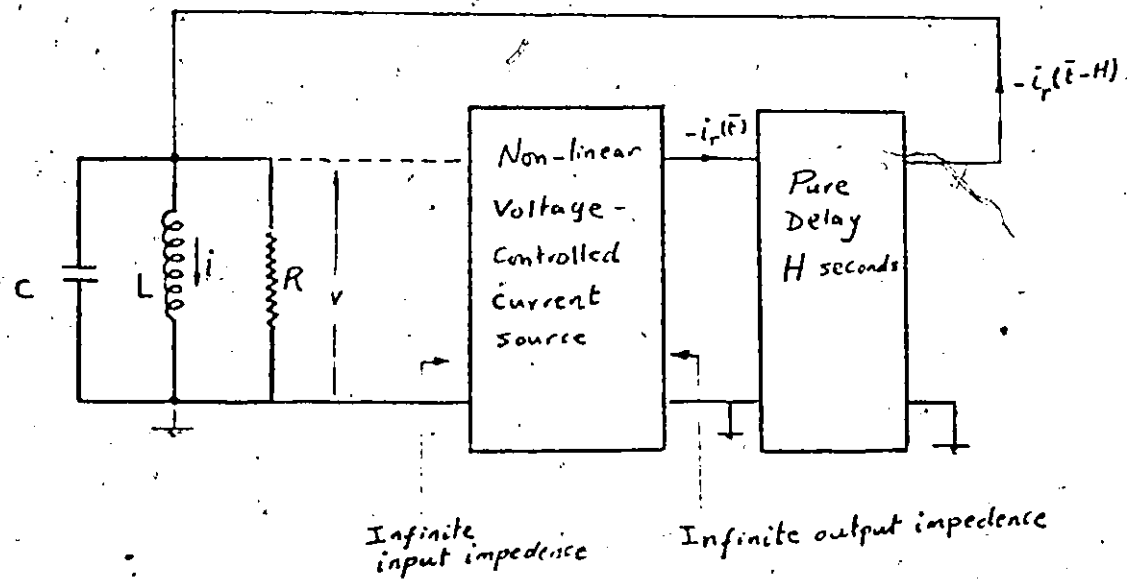 -i_r(t̄-H)
-i_r(t̄)
Non-linear
Voltage-
Controlled
Current
source
Pure
Delay
H seconds
C
L
i
R
v
Infinite
input impedence
Infinite output impedence